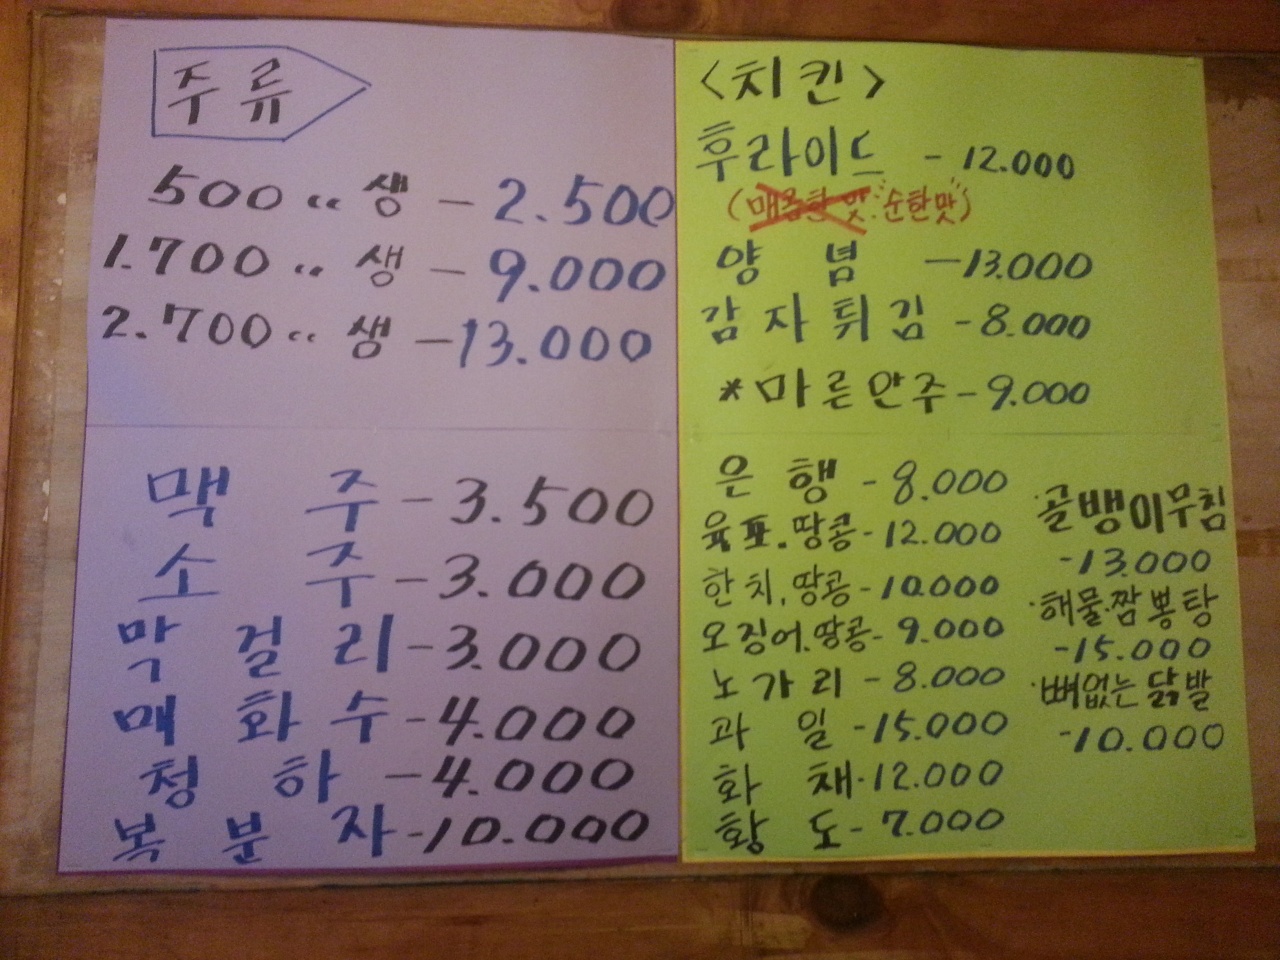 주류
500cc 생 - 2.500
1.700cc 생 - 9.000
2.700cc 생 - 13.000
맥주 - 3.500
소주 - 3.000
막걸리 - 3.000
매화수 - 4.000
청하 - 4.000
복분자 - 10.000
<치킨>
후라이드 - 12.000
(매콤한 맛. 순한맛)
양념 - 13.000
감자튀김 - 8.000
*마른안주 - 9.000
은행 - 8.000
육포.땅콩 - 12.000
한치.땅콩 - 10.000
오징어.땅콩 - 9.000
노가리 - 8.000
과일 - 15.000
화채 - 12.000
황도 - 7.000
·골뱅이무침
- 13.000
·해물.짬뽕탕
- 15.000
·뼈없는 닭발
- 10.000